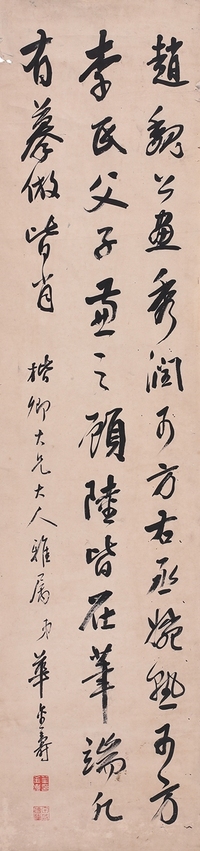 趙魏公畫秀潤可方右丞婉孌可方
李氏父子兼之顧陸皆在筆端凡
有摹倣皆肖
楷卿大兄大人雅屬 弟華金壽